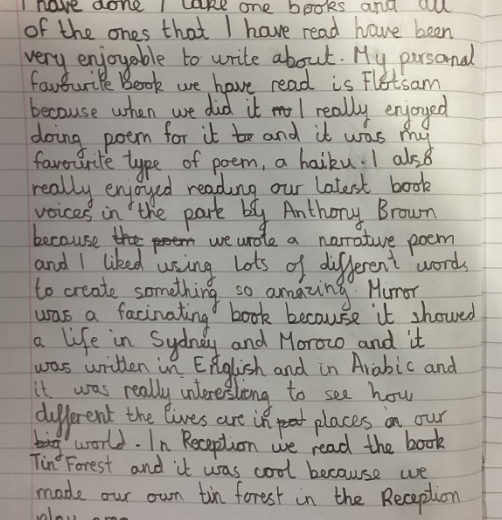 I have done I like one books and all
of the ones that I have read have been
very enjoyable to write about. My personal
favourite book we have read is Flotsam
because when we did it I really enjoyed
doing poem for it and it was my
favourite type of poem, a haiku. I also
really enjoyed reading our latest book
voices in the park by Anthony Brown
because the poem we wrote a narrative poem
and I liked using lots of different words
to create something so amazing. Mirror
was a facinating book because it showed
a life in Sydney and Moroco and it
was written in English and in Arabic and
it was really interesting to see how
different the lives are in places in our
big world. In Reception we read the book
Tin Forest and it was cool because we
made our own tin forest in the Reception
play area